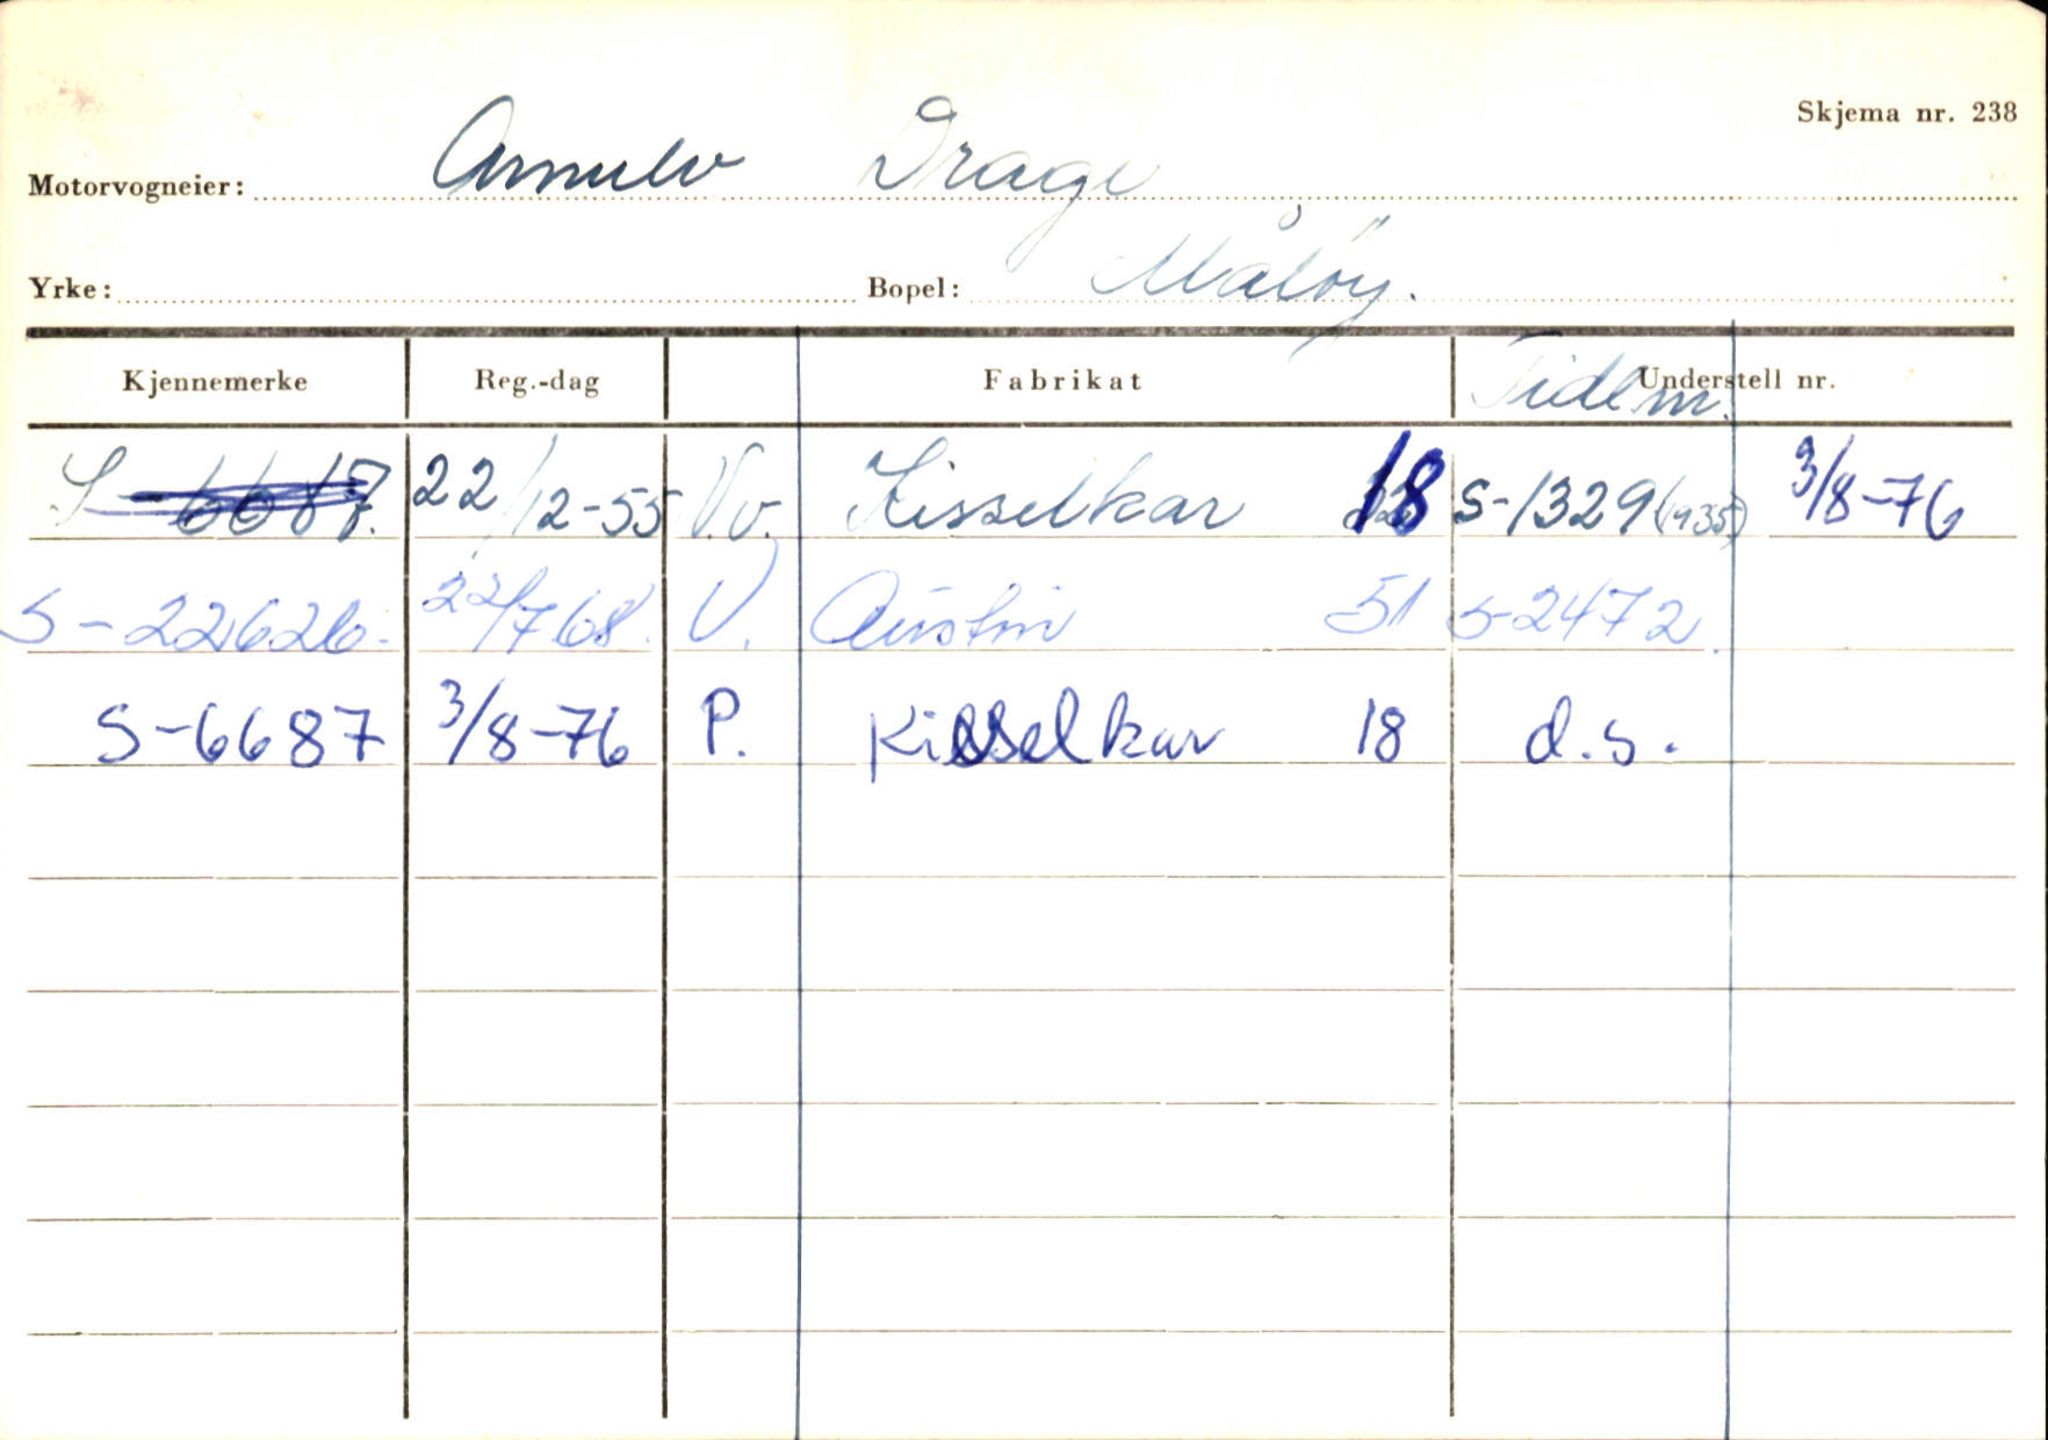 Skjema nr. 238
Motorvogneier: Arnulv Drage
Yrke: Bopel: Måløy.
Kjennemerke Reg.-dag Fabrikat Understell nr. Tidl m.
S-6687. 22/12-55 V.v. Kisselkar 18 S-1329 (1935) 3/8-76
S-22626. 22/7 68. V. Austin 51 S-2472.
S-6687 3/8-76 P. Kisselkar 18 d.s.